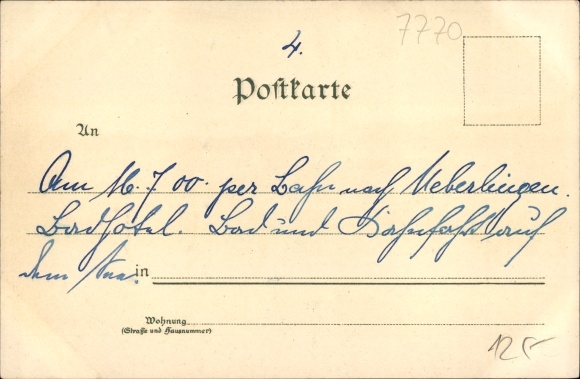 7770
4.
Postkarte
An
Am 16.7.00. per Bahn nach Ueberlingen.
Badhotel. Bad und Kahnfahrt auf
dem See.
in
Wohnung
(Straße und Hausnummer)
12.-